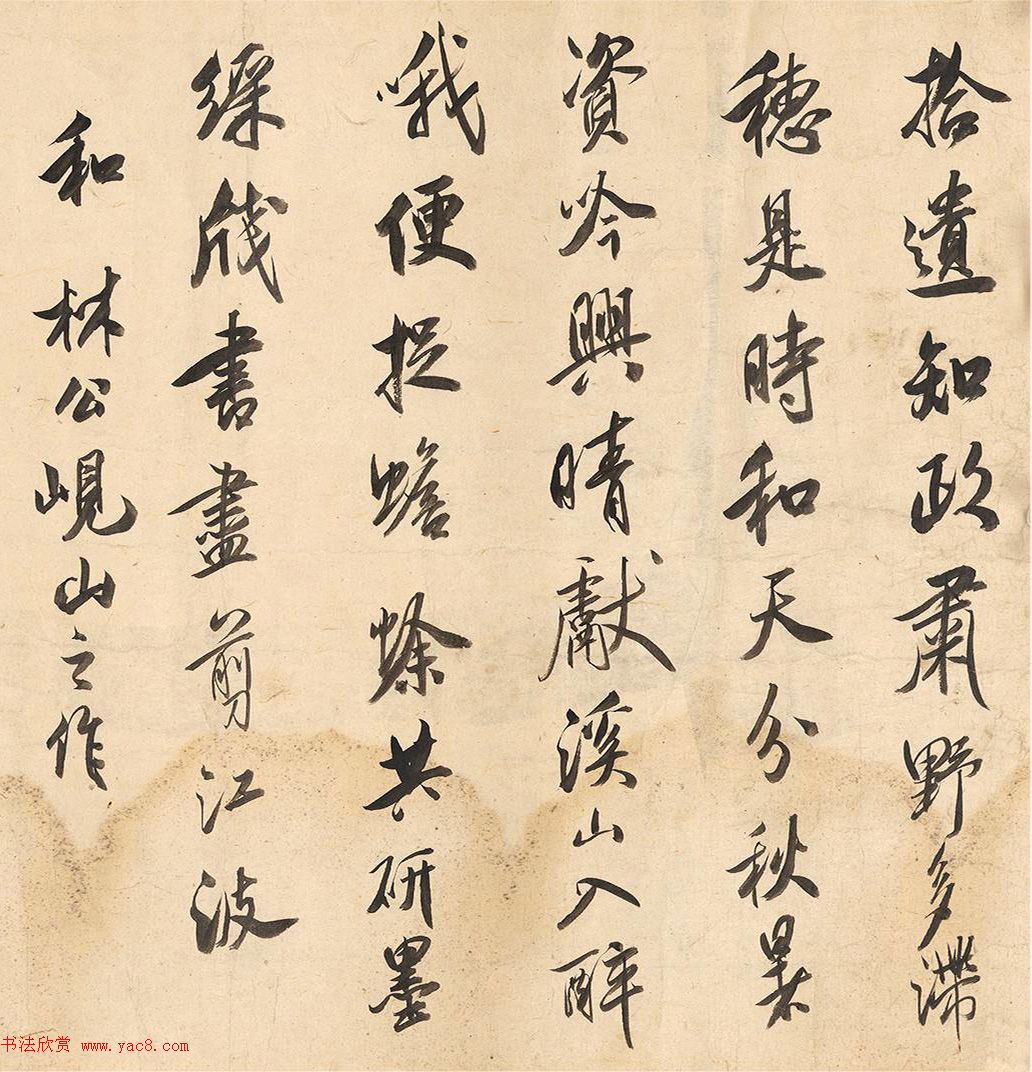 拾遺知政肅野多滯
穗是時和天分秋暑
資吟興晴獻溪山入醉
哦便捉蟾蜍共研墨
綵牋書盡剪江波
和林公峴山之作
书法欣赏 www.yac8.com